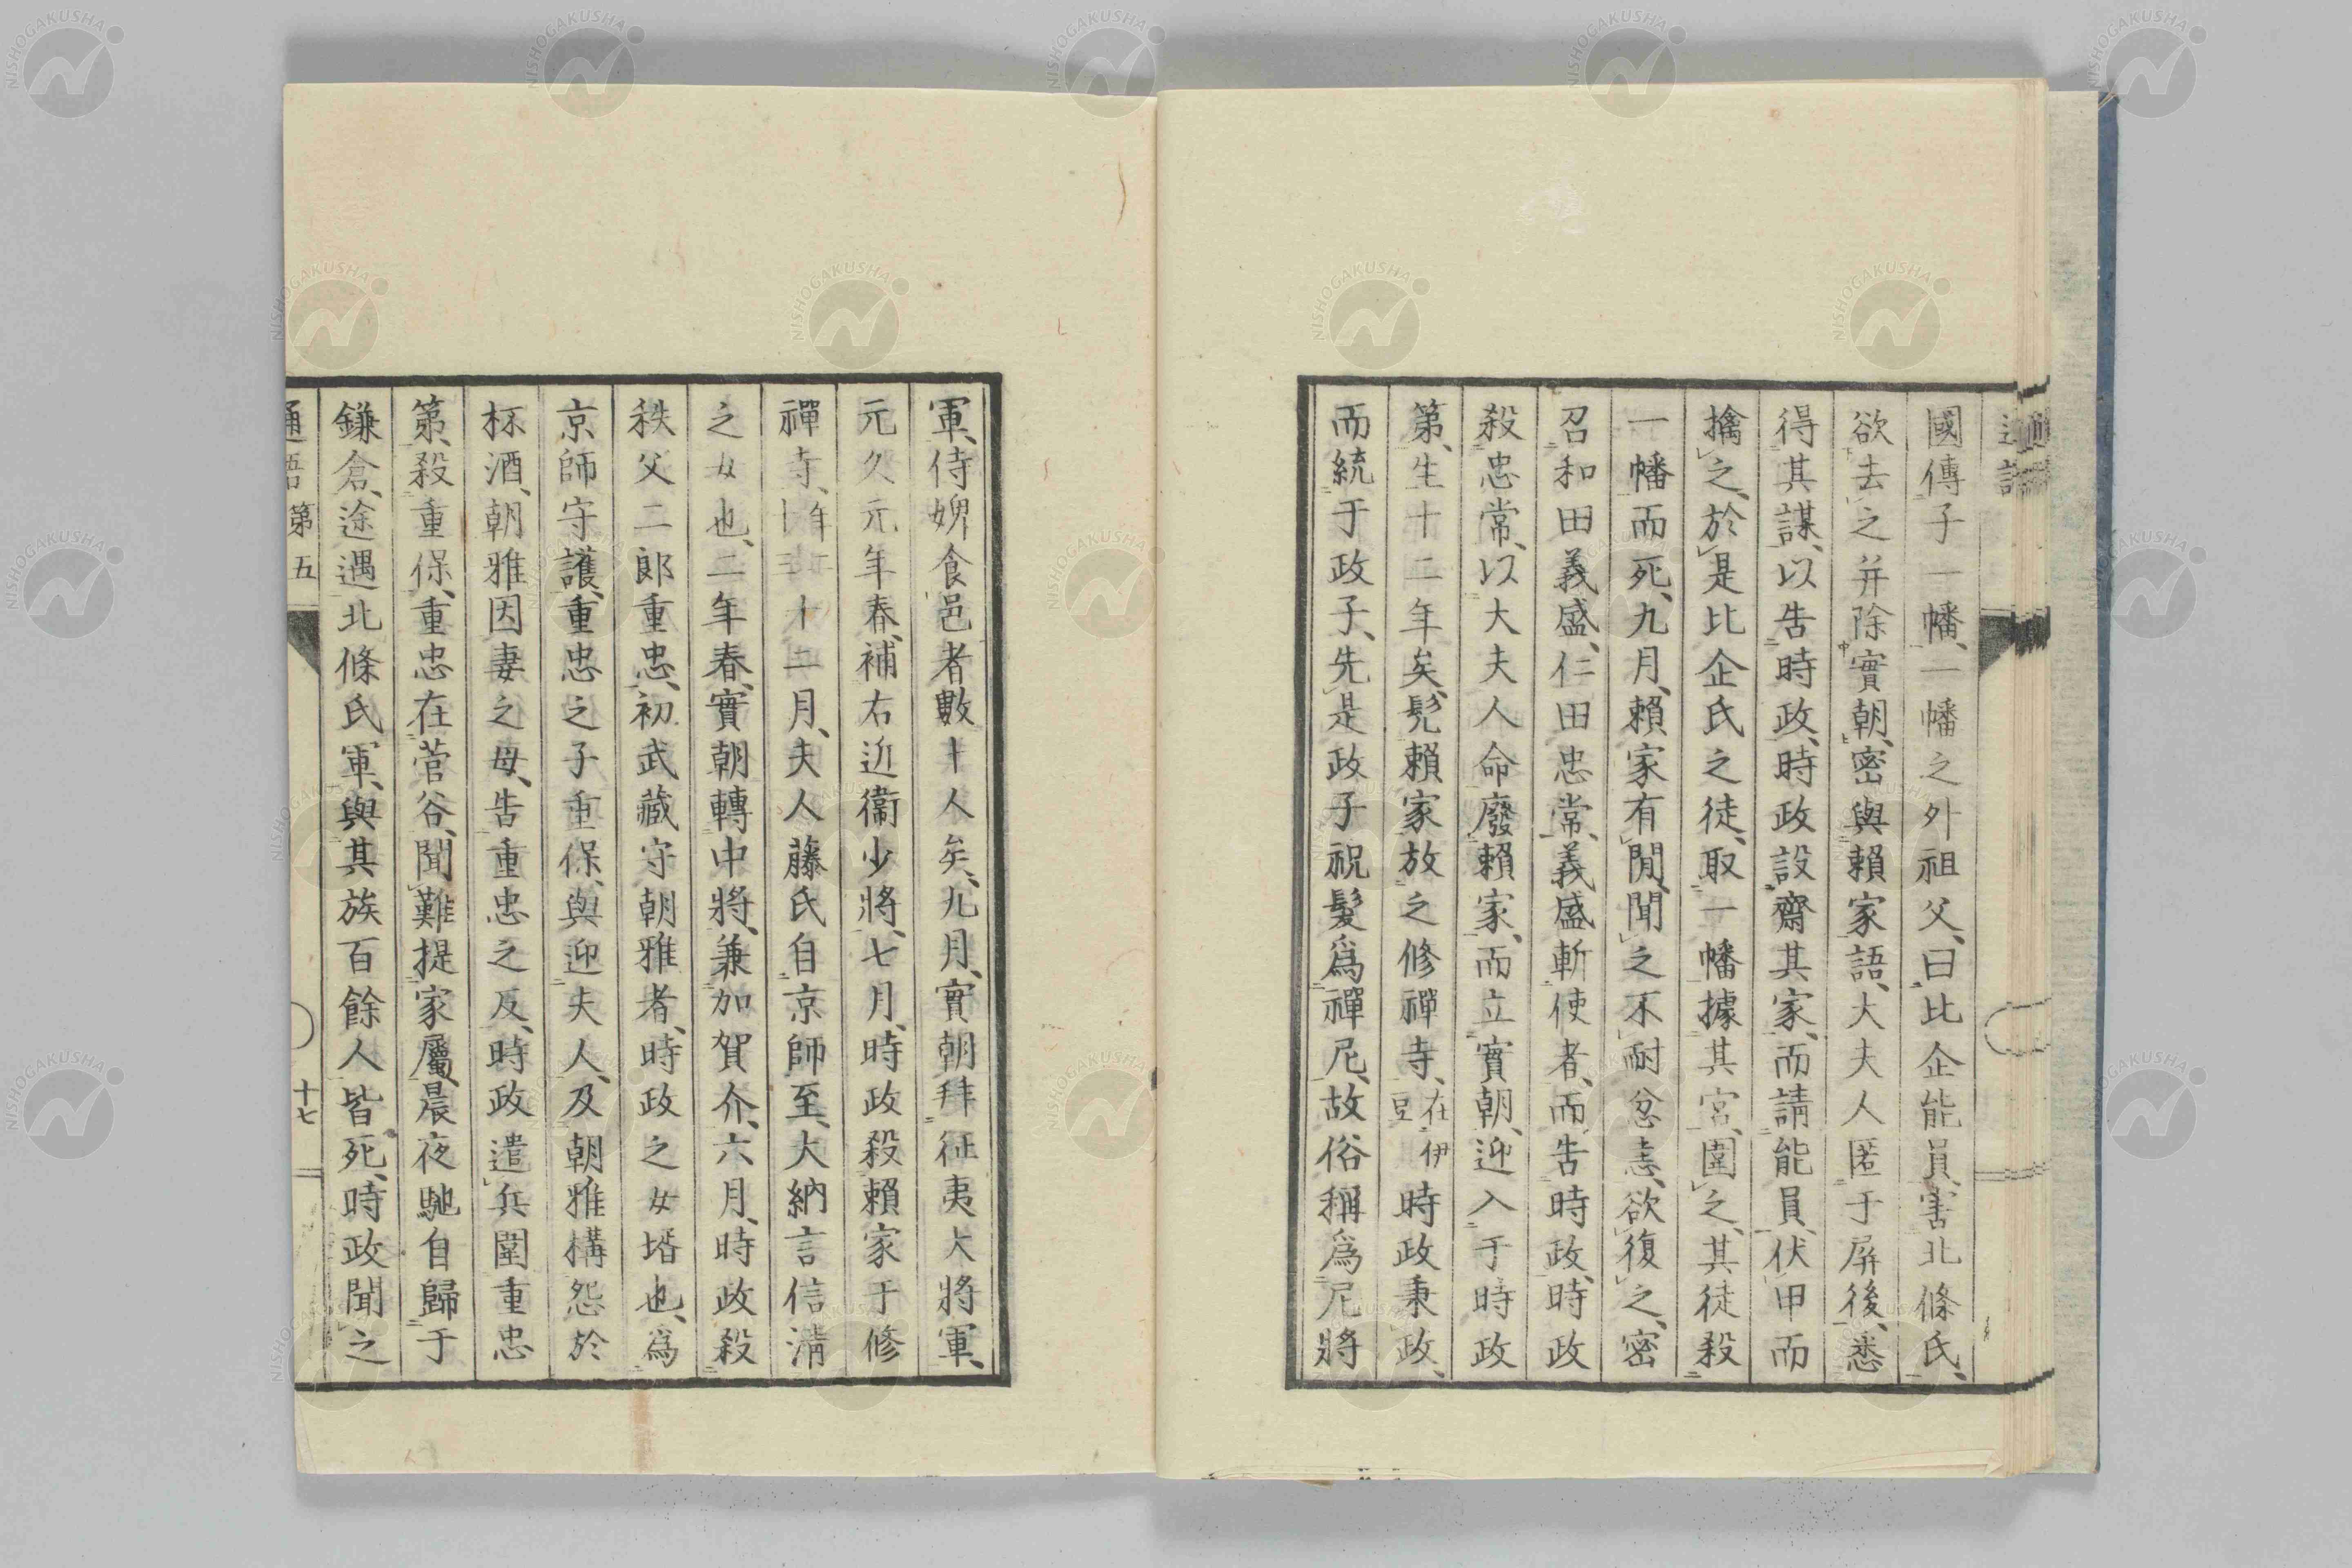 國傳子一幡、一幡之外祖父、曰比企能員、害北條氏、
欲去之并除實朝、密與賴家語、大夫人匿于屏後、悉
得其謀、以告時政、時政設齋其家、而請能員、伏甲而
擒之、於是比企氏之徒、取一幡據其宮、圍之、其徒殺
一幡而死、九月、賴家有閒、聞之不耐忿恚、欲復之、密
召和田義盛、仁田忠常、義盛斬使者、而告時政、時政
殺忠常、以大夫人命廢賴家、而立實朝、迎入于時政
第、生十二年矣、髡賴家放之修禪寺、在伊豆時政秉政、
而統于政子、先是政子祝髮爲禪尼、故俗稱爲尼將
軍、侍婢食邑者數十人矣、九月、實朝拜征夷大將軍、
元久元年春、補右近衞少將、七月、時政殺賴家于修
禪寺、十二月、夫人藤氏自京師至、大納言信淸
之女也、二年春、實朝轉中將、兼加賀介、六月、時政殺
秩父二郎重忠、初武藏守朝雅者、時政之女壻也、爲
京師守護、重忠之子重保、與迎夫人、及朝雅構怨於
杯酒、朝雅因妻之母、告重忠之反、時政遣兵圍重忠
第、殺重保、重忠在菅谷、聞難提家屬、晨夜馳自歸于
鎌倉、途遇北條氏軍、與其族百餘人皆死、時政聞之
通語第五
十七
NISHOGAKUSHA